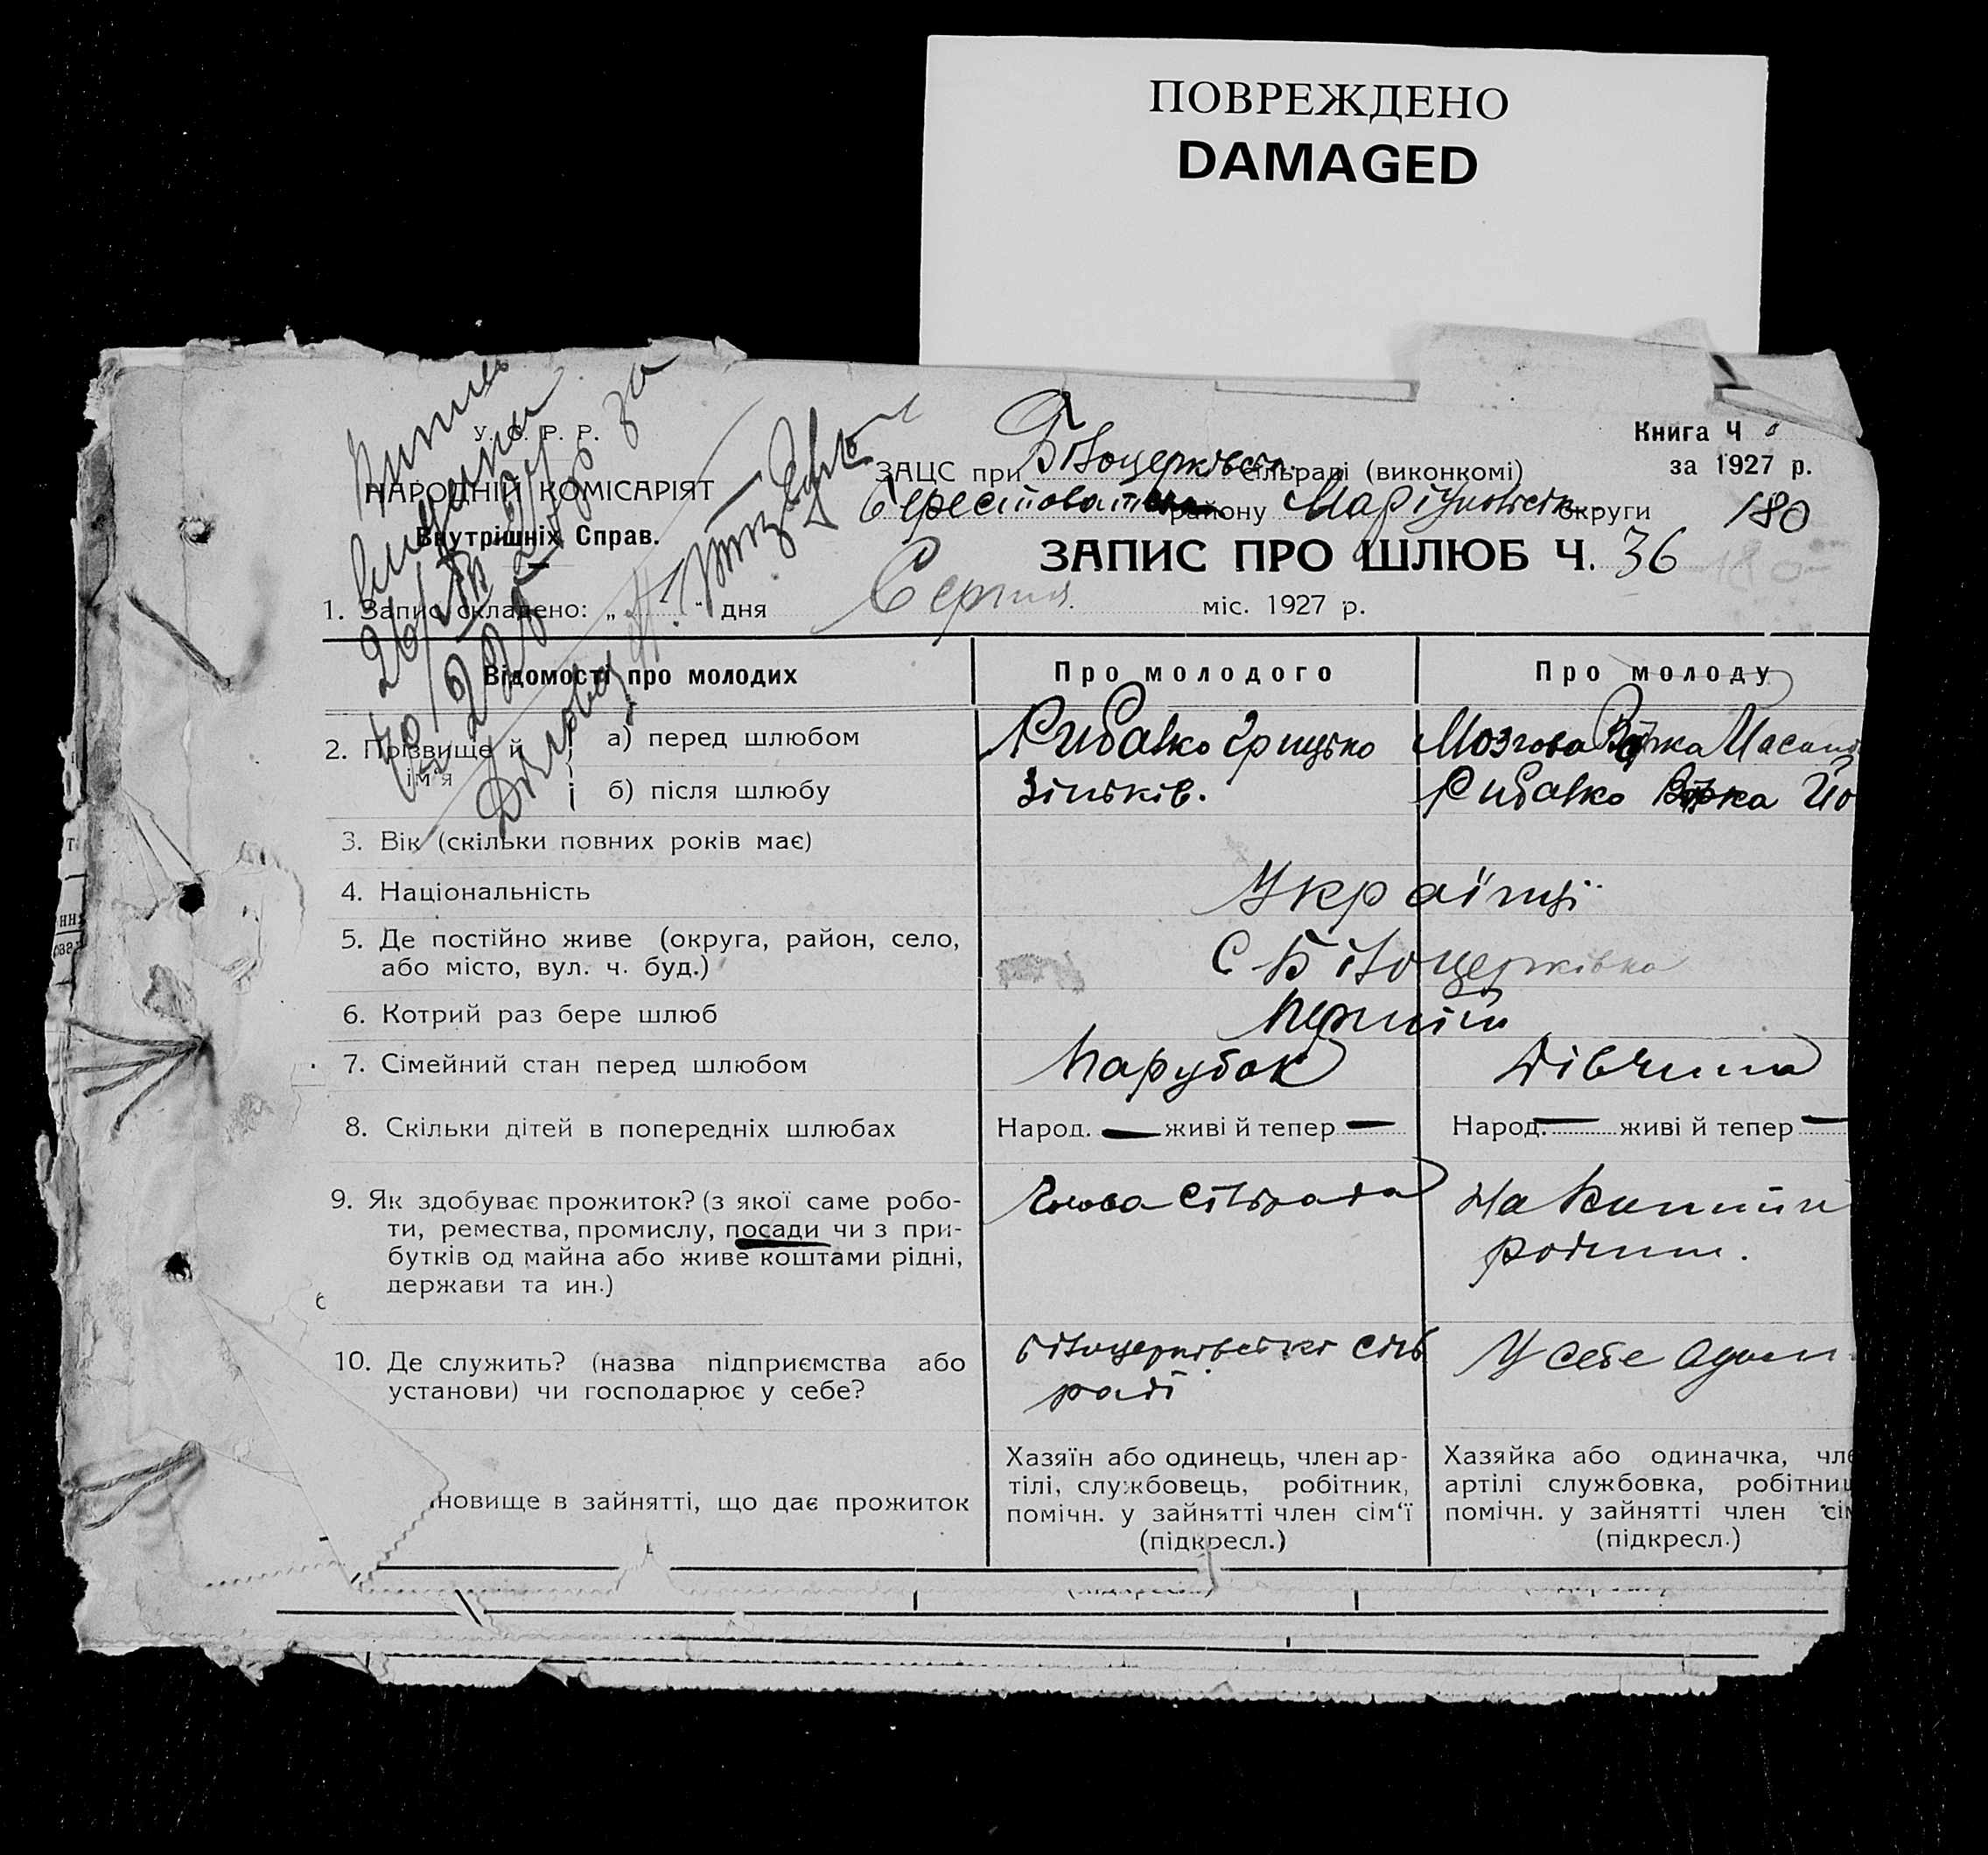 ПОВРЕЖДЕНО
DAMAGED
У. С. Р. Р.
НАРОДНІЙ КОМІСАРІЯТ
Внутрішніх Справ.
Книга Ч
за 1927 р.
180
ЗАЦС при Білоцерківськ. сільраді (виконкомі)
району Маріупольськ. округи
ЗАПИС ПРО ШЛЮБ Ч. 36
1. Запис складено: „ “ дня Серпня міс. 1927 р.
Відомості про молодих
Про молодого
Про молоду
2. Прізвище й ім‘я
а) перед шлюбом
Рибалко Грицько
Мозгова
б) після шлюбу
Зіньків.
Рибалко
3. Вік (скільки повних років має)
4. Національність
Українці
5. Де постійно живе (округа, район, село,
або місто, вул. ч. буд.)
С Білоцерківка
6. Котрий раз бере шлюб
7. Сімейний стан перед шлюбом
Парубок
Дівчина
8. Скільки дітей в попередніх шлюбах
Народ. — живі й тепер —
Народ. — живі й тепер —
9. Як здобуває прожиток? (з якої саме робо-
ти, ремества, промислу, посади чи з при-
бутків од майна або живе коштами рідні,
держави та ин.)
Голова сільради
На
родини.
10. Де служить? (назва підприємства або
установи) чи господарює у себе?
Білоцерківські сіль
раді
У себе
новище в зайнятті, що дає прожиток
Хазяїн або одинець, член ар-
тілі, службовець, робітник,
помічн. у зайнятті член сім‘ї
(підкресл.)
Хазяйка або одиначка, чле
артілі службовка, робітниц
помічн. у зайнятті член сім
(підкресл.)